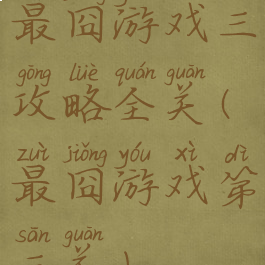 最囧游戏三
gōng lüè quán guān
攻略全关(
zuì jiǒng yóu xì dì
最囧游戏第
sān guān
三关)